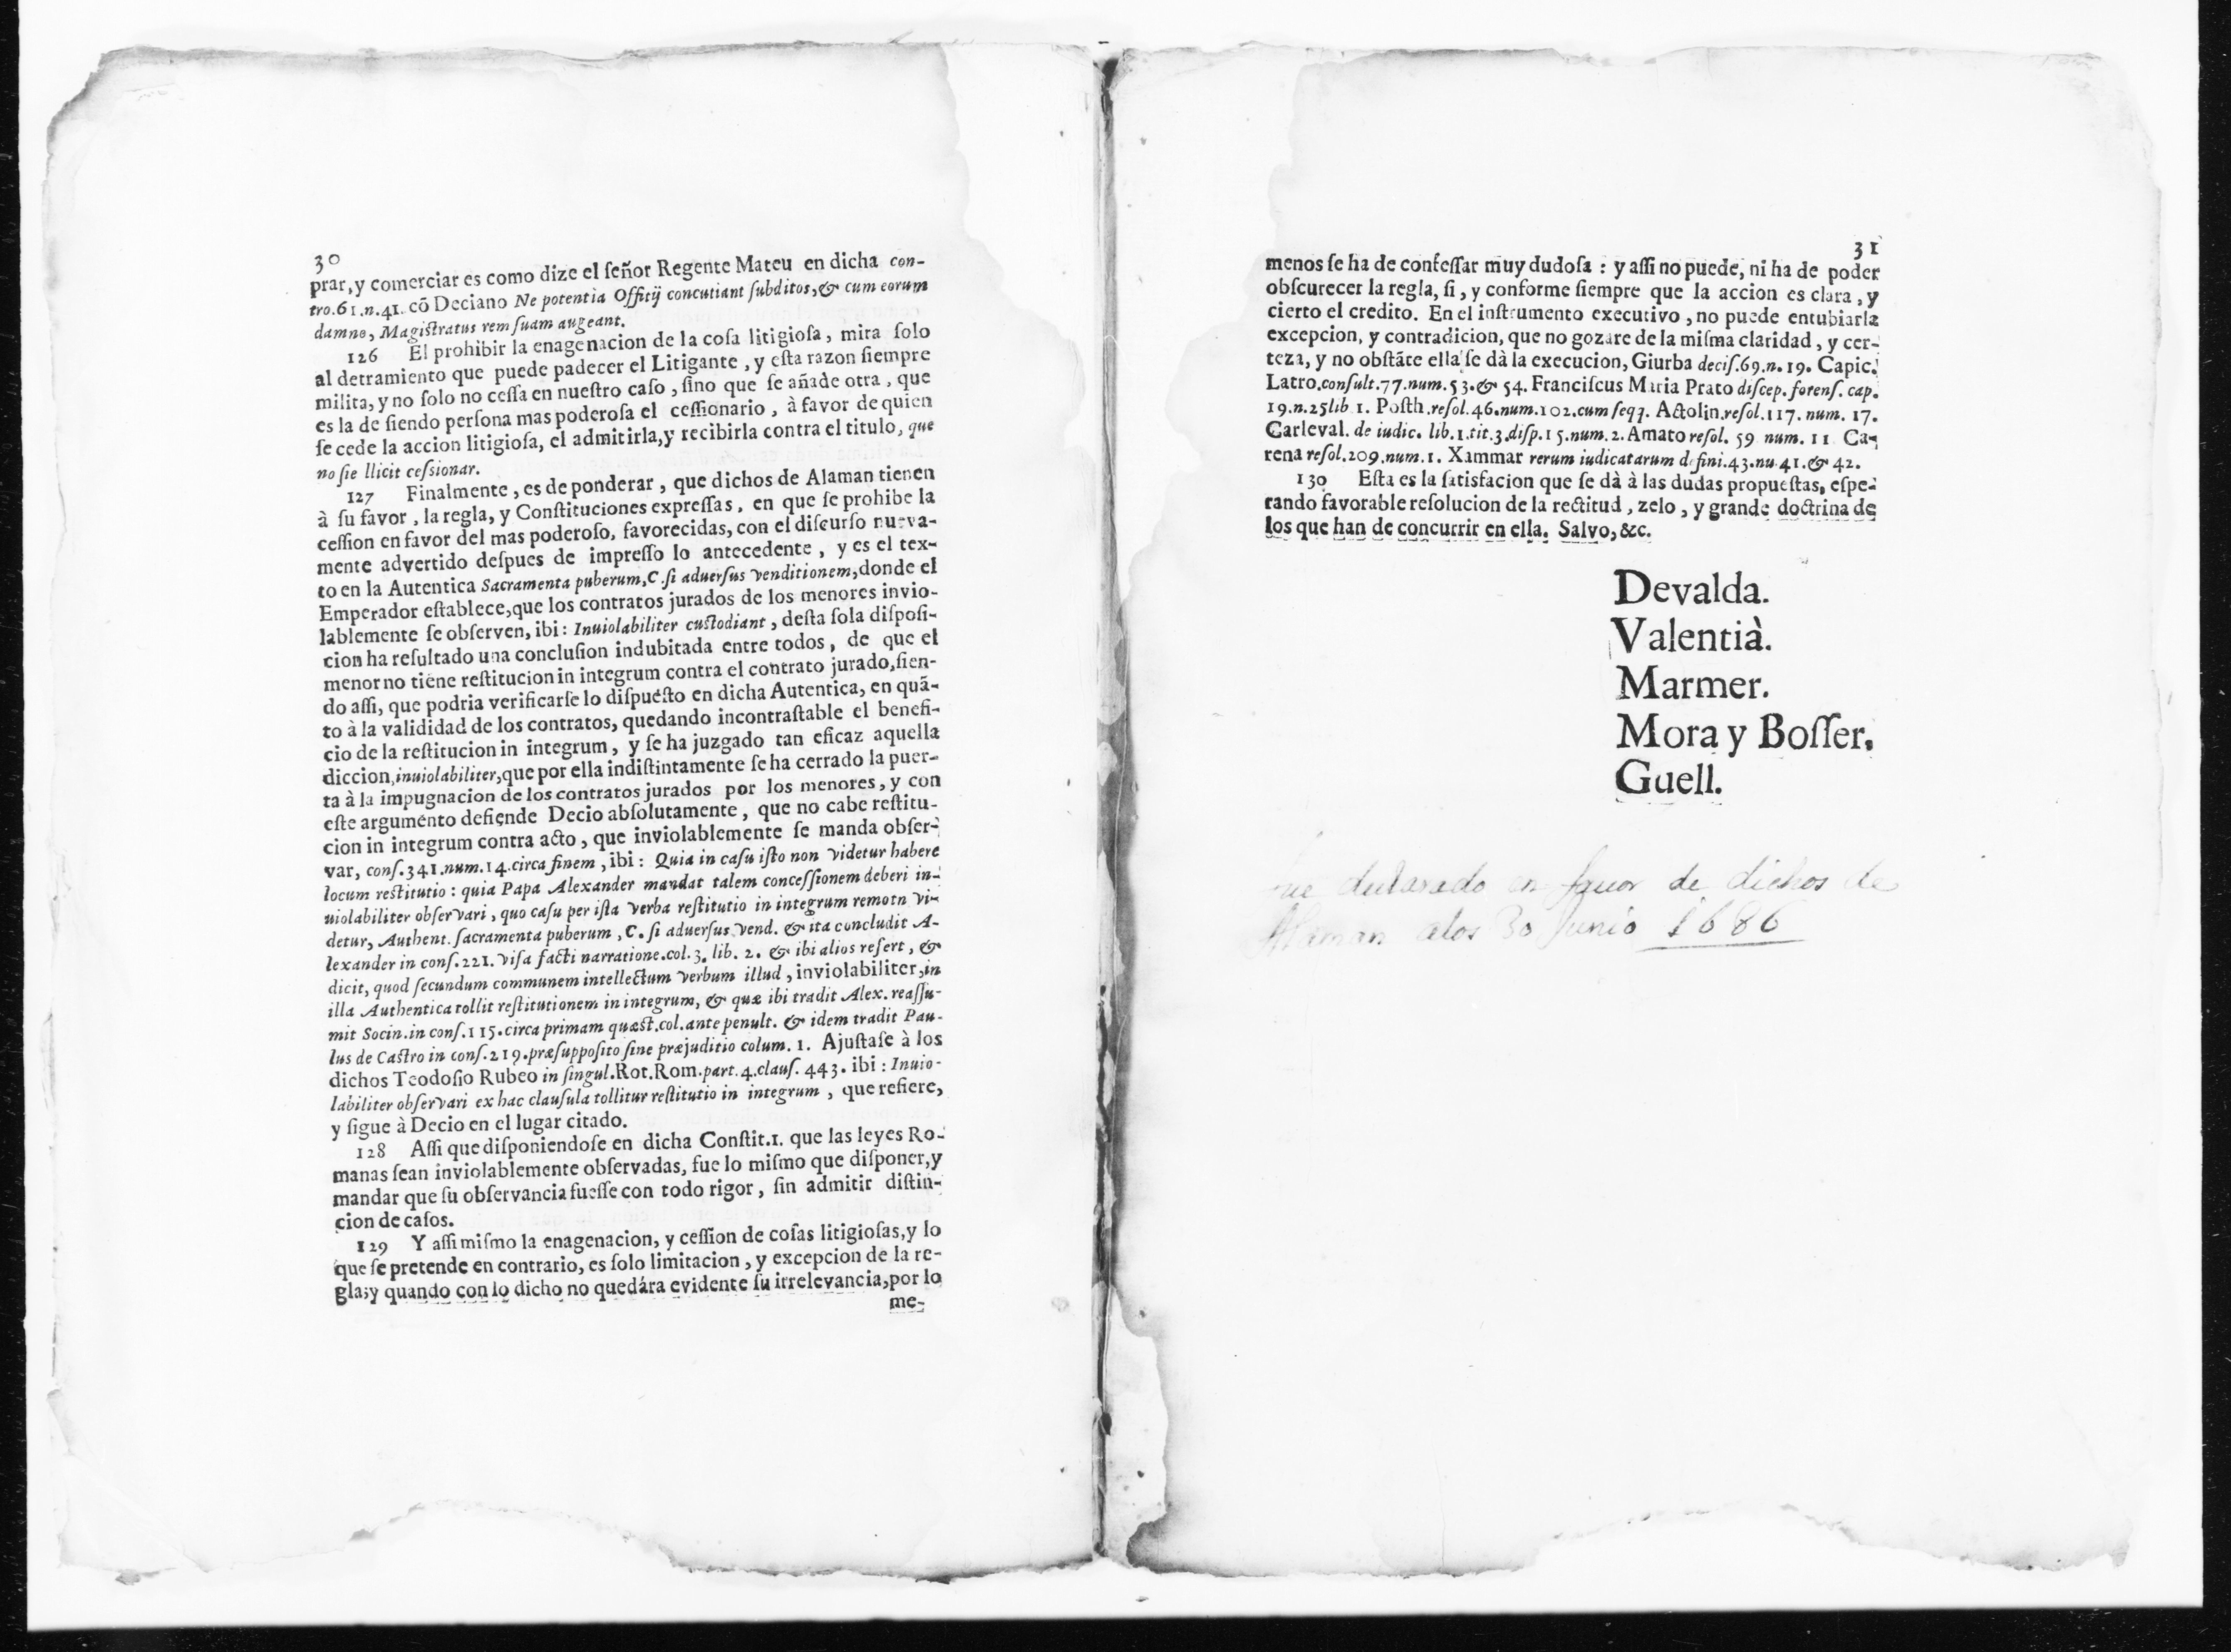 30
prar, y comerciar es como dize el ſeñor Regente Mateu en dicha con-
tro.61.n.41. cõ Deciano Ne potentia Offitij concutiant ſubditos, & cum eorum
damno, Magiſtratus rem ſuam augeant.
126 El prohibir la enagenacion de la coſa litigioſa, mira ſolo
al detramiento que puede padecer el Litigante, y eſta razon ſiempre
milita, y no ſolo no ceſſa en nueſtro caſo, ſino que ſe añade otra, que
es la de ſiendo perſona mas poderoſa el ceſſionario, à favor de quien
ſe cede la accion litigioſa, el admitirla, y recibirla contra el titulo, que
no ſie llicit ceſsionar.
127 Finalmente, es de ponderar, que dichos de Alaman tienen
à ſu favor, la regla, y Conſtituciones expreſſas, en que ſe prohibe la
ceſſion en favor del mas poderoſo, favorecidas, con el diſcurſo nueva-
mente advertido deſpues de impreſſo lo antecedente, y es el tex-
to en la Autentica Sacramenta puberum, C. ſi aduerſus venditionem, donde el
Emperador eſtablece, que los contratos jurados de los menores invio-
lablemente ſe obſerven, ibi: Inuiolabiliter cuſtodiant, deſta ſola diſpoſi-
cion ha reſultado una concluſion indubitada entre todos, de que el
menor no tiene reſtitucion in integrum contra el contrato jurado, ſien-
do aſſi, que podria verificarſe lo diſpueſto en dicha Autentica, en quã-
to à la valididad de los contratos, quedando incontraſtable el benefi-
cio de la reſtitucion in integrum, y ſe ha juzgado tan eficaz aquella
diccion, inuiolabiliter, que por ella indiſtintamente ſe ha cerrado la puer-
ta à la impugnacion de los contratos jurados por los menores, y con
eſte argumento defiende Decio abſolutamente, que no cabe reſtitu-
cion in integrum contra acto, que inviolablemente ſe manda obſer-
var, conſ.341.num.14.circa finem, ibi: Quia in caſu iſto non videtur habere
locum reſtitutio: quia Papa Alexander mandat talem conceſſionem deberi in-
uiolabiliter obſervari, quo caſu per iſta verba reſtitutio in integrum remotn vi-
detur, Authent. ſacramenta puberum, C. ſi aduerſus vend. & ita concludit A-
lexander in conſ.221. viſa facti narratione.col.3. lib. 2. & ibi alios refert, &
dicit, quod ſecundum communem intellectum verbum illud, inviolabiliter, in
illa Authentica tollit reſtitutionem in integrum, & quæ ibi tradit Alex. reaſſu-
mit Socin.in conſ.115.circa primam quæſt.col.ante penult. & idem tradit Pau-
lus de Caſtro in conſ.219.præſuppoſito ſine præjuditio colum. 1. Ajuſtaſe à los
dichos Teodoſio Rubeo in ſingul.Rot.Rom.part.4.clauſ. 443. ibi: Inuio-
labiliter obſervari ex hac clauſula tollitur reſtitutio in integrum, que refiere,
y ſigue à Decio en el lugar citado.
128 Aſſi que diſponiendoſe en dicha Conſtit.1. que las leyes Ro-
manas ſean inviolablemente obſervadas, fue lo miſmo que diſponer, y
mandar que ſu obſervancia fueſſe con todo rigor, ſin admitir diſtin-
cion de caſos.
129 Y aſſi miſmo la enagenacion, y ceſſion de coſas litigioſas, y lo
que ſe pretende en contrario, es ſolo limitacion, y excepcion de la re-
gla; y quando con lo dicho no quedára evidente ſu irrelevancia, por lo
me-
31
menos ſe ha de confeſſar muy dudoſa: y aſſi no puede, ni ha de poder
obſcurecer la regla, ſi, y conforme ſiempre que la accion es clara, y
cierto el credito. En el inſtrumento executivo, no puede entubiarla
excepcion, y contradicion, que no gozare de la miſma claridad, y cer-
teza, y no obſtãte ella ſe dà la execucion, Giurba deciſ.69.n.19. Capic.
Latro.conſult.77.num.53.& 54. Franciſcus Maria Prato diſcep. forenſ. cap.
19.n.25lib 1. Poſth.reſol.46.num.102.cum ſeqq. Actolin.reſol.117. num. 17.
Carleval. de iudic. lib.1.tit.3.diſp.15.num.2. Amato reſol. 59 num. 11 Ca-
rena reſol.209.num.1. Xammar rerum iudicatarum defini.43.nu.41.& 42.
130 Eſta es la ſatisfacion que ſe dà à las dudas propueſtas, eſpe-
rando favorable reſolucion de la rectitud, zelo, y grande doctrina de
los que han de concurrir en ella. Salvo, &c.
Devalda.
Valentià.
Marmer.
Mora y Boſſer.
Guell.
fue declarado en favor de dichos de
Alaman alos 30 Junio 1686